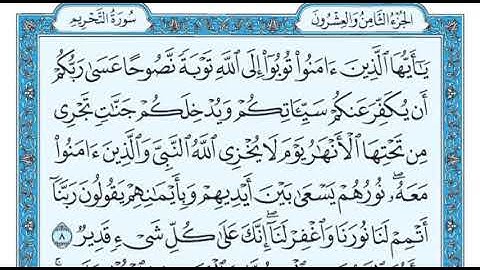 سُورَةُ التَّحْرِيمِ الجُزْءُ الثَّامِنُ وَالعِشْرُونَ
يَٰٓأَيُّهَا ٱلَّذِينَ ءَامَنُوا۟ تُوبُوٓا۟ إِلَى ٱللَّهِ تَوْبَةً نَّصُوحًا عَسَىٰ رَبُّكُمْ
أَن يُكَفِّرَ عَنكُمْ سَيِّـَٔاتِكُمْ وَيُدْخِلَكُمْ جَنَّٰتٍ تَجْرِى
مِن تَحْتِهَا ٱلْأَنْهَٰرُ يَوْمَ لَا يُخْزِى ٱللَّهُ ٱلنَّبِىَّ وَٱلَّذِينَ ءَامَنُوا۟
مَعَهُۥ ۖ نُورُهُمْ يَسْعَىٰ بَيْنَ أَيْدِيهِمْ وَبِأَيْمَٰنِهِمْ يَقُولُونَ رَبَّنَآ
أَتْمِمْ لَنَا نُورَنَا وَٱغْفِرْ لَنَآ ۖ إِنَّكَ عَلَىٰ كُلِّ شَىْءٍ قَدِيرٌ ٨